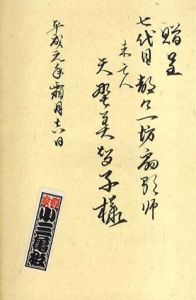 贈呈
七代目都々一坊扇歌師
未亡人
天野美智子様
平成元年霜月十六日
小三亀松